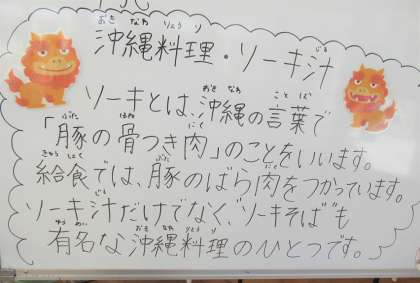 沖縄料理・ソーキ汁
ソーキとは、沖縄の言葉で
「豚の骨つき肉」のことをいいます。
給食では、豚のばら肉をつかっています。
ソーキ汁だけでなく、"ソーキそば"も
有名な沖縄料理のひとつです。